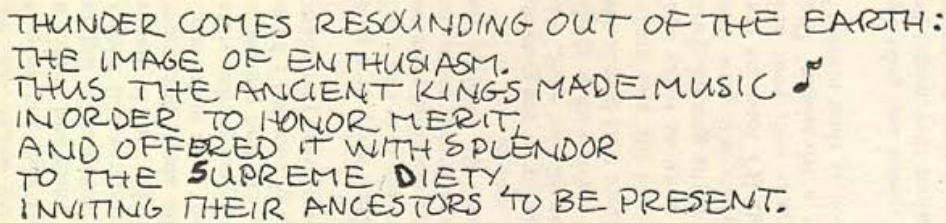 THUNDER COMES RESOUNDING OUT OF THE EARTH:
THE IMAGE OF ENTHUSIASM.
THUS THE ANCIENT KINGS MADE MUSIC ♪
IN ORDER TO HONOR MERIT,
AND OFFERED IT WITH SPLENDOR
TO THE SUPREME DIETY,
INVITING THEIR ANCESTORS TO BE PRESENT.